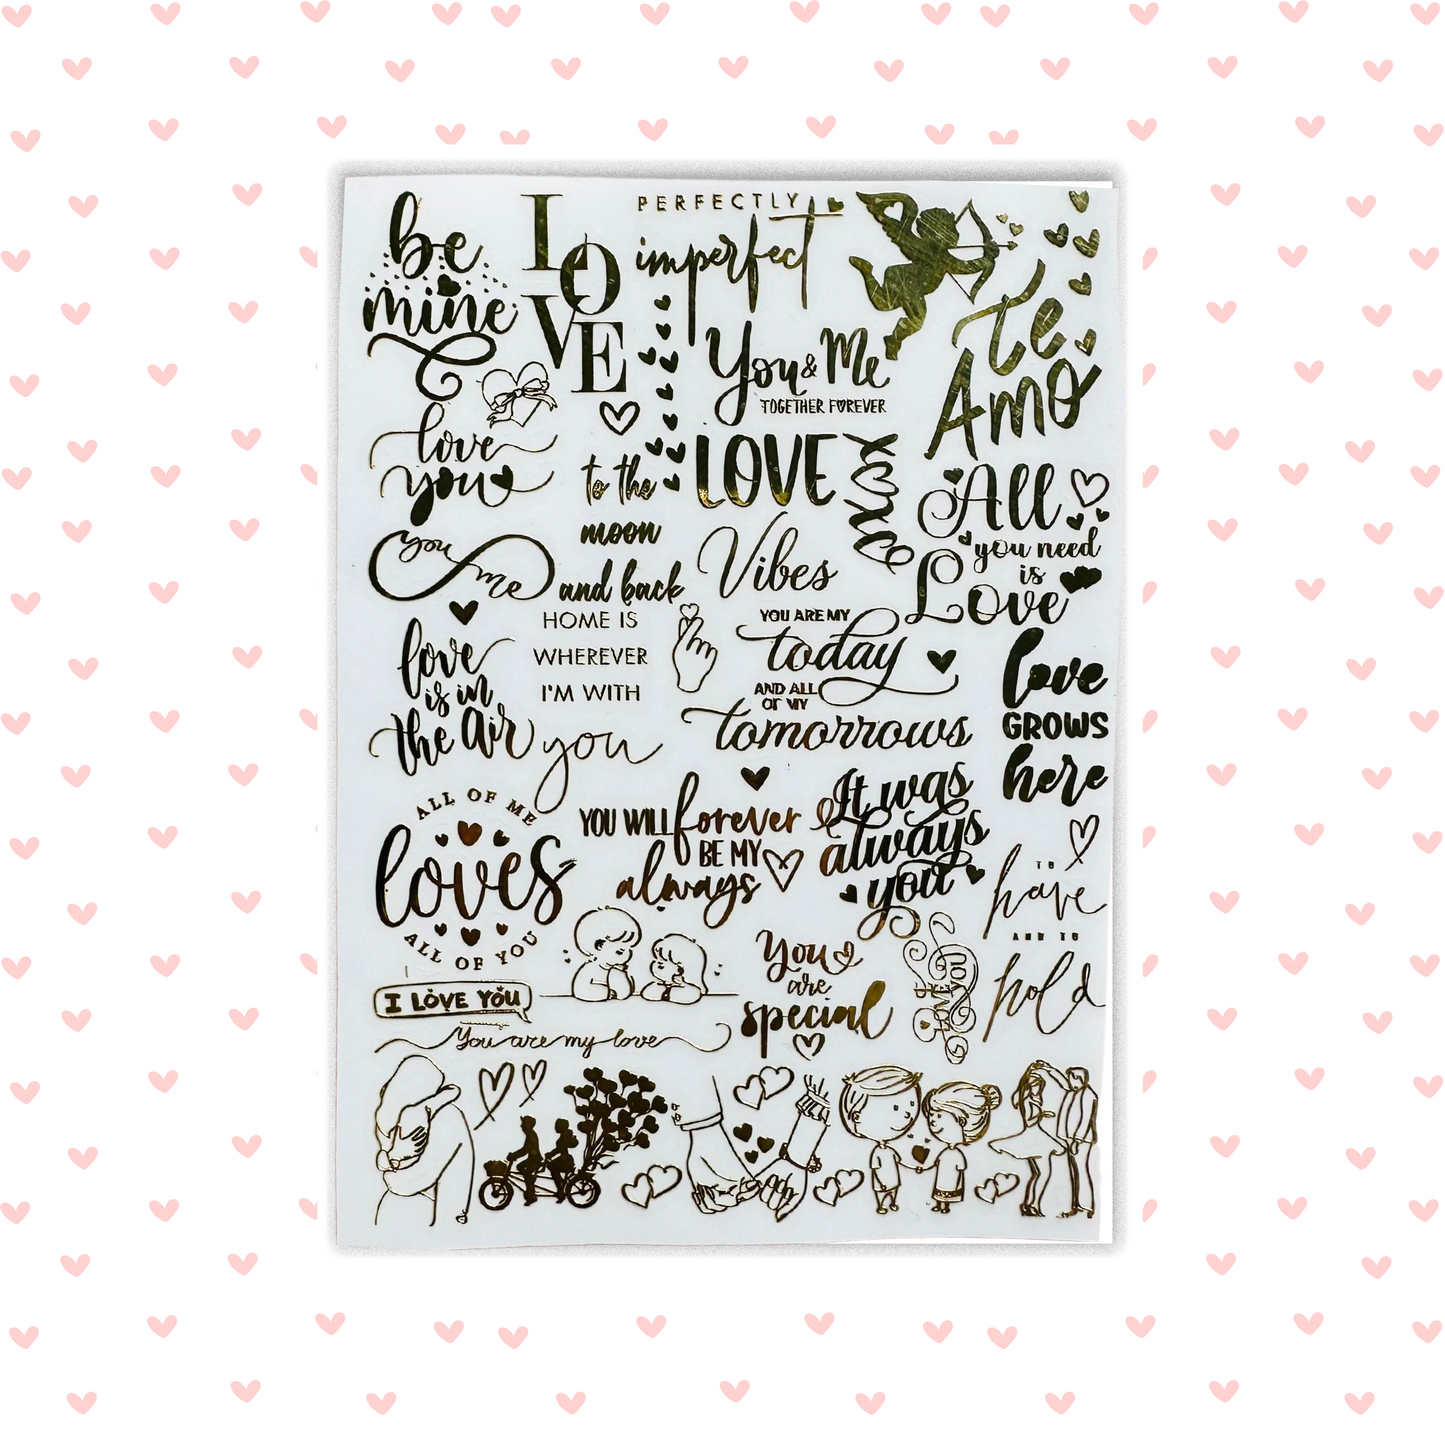 be
mine
LOVE
PERFECTLY
imperfect
You & Me
TOGETHER FOREVER
Te
Amo
love
you
to the
moon
and back
LOVE
Vibes
xoxo
All
you need
is
Love
you
me
HOME IS
WHEREVER
I'M WITH
you
YOU ARE MY
today
AND ALL
OF MY
tomorrows
love
is in
the air
love
GROWS
here
ALL OF ME
loves
ALL OF YOU
YOU WILL forever
BE MY
always
It was
always
you
TO
have
AND TO
hold
I LOVE YOU
You are my love
You
are
special